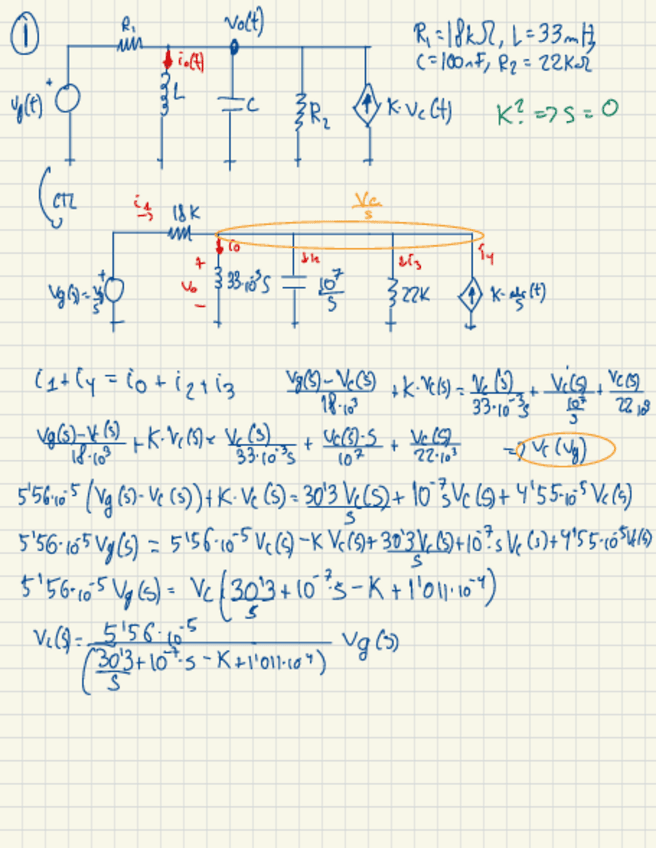 ①
R₁
v₀(t)
R₁=18kΩ, L=33mH
i₀(t)
C=100nF, R₂=22KΩ
vg(t)
+
L
C
R₂
K·Vc(t)
K? => s=0
CTL
i₁
18K
Vc/s
Vg(s)=Vg/s
+
+
i₀
V₀
-
33·10⁻³s
10⁷/s
i₃
22K
i₄
i₁+i₄=i₀+i₂+i₃ (Vg(s)-Vc(s))/(18·10³) +K·Vc(s)= Vc(s)/(33·10⁻³s) + Vc(s)/(10⁷/s) + Vc(s)/(22·10³)
(Vg(s)-Vc(s))/(18·10³) +K·Vc(s)= Vc(s)/(33·10⁻³s) + Vc(s)·s/10⁷ + Vc(s)/(22·10³) => Vc(Vg)
5'56·10⁻⁵ (Vg(s)-Vc(s))+K·Vc(s)= 30'3 Vc(s)/s + 10⁻⁷sVc(s)+4'55·10⁻⁵Vc(s)
5'56·10⁻⁵ Vg(s) = 5'56·10⁻⁵ Vc(s)-KVc(s)+ 30'3Vc(s)/s +10⁻⁷·sVc(s)+4'55·10⁻⁵Vc(s)
5'56·10⁻⁵ Vg(s)= Vc(30'3/s +10⁻⁷·s-K+1'011·10⁻⁴)
Vc(s)= 5'56·10⁻⁵/(30'3/s +10⁻⁷·s-K+1'011·10⁻⁴) Vg(s)